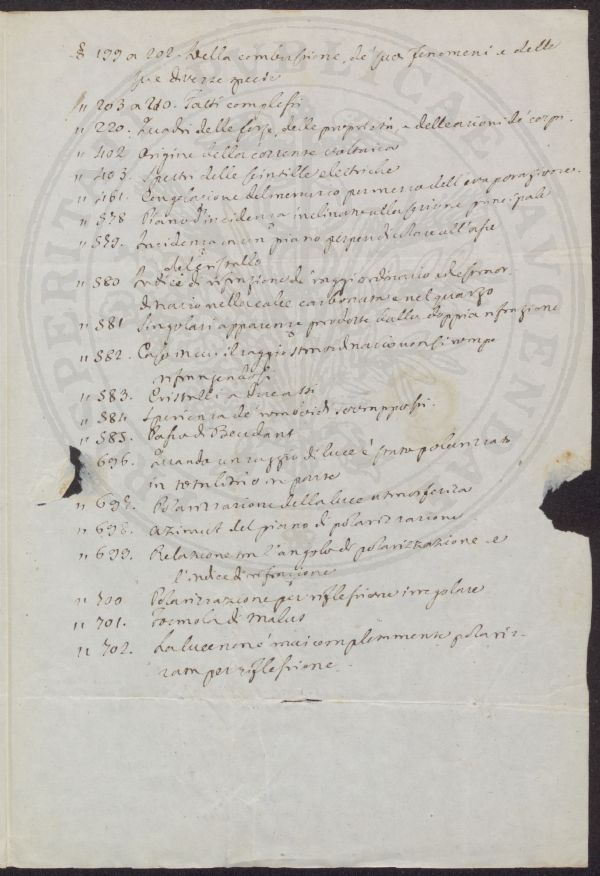 § 199 a 202. Della combustione, de' suoi fenomeni e delle
sue diverse specie
" 203 a 210. Fatti complessi
" 220. Quadri delle forze, delle proprietà, e delle azioni de' corpi.
" 402 Origine della corrente voltaica
" 403. Spettri delle scintille elettriche
" 461. Congelazione del mercurio per mezzo dell'evaporazione.
" 578 Piano d'incidenza inclinato alla sezione principale
" 579. Incidenza in un piano perpendicolare all'asse
del cristallo
" 580 Indice di rifrazione de' raggi ordinario e straor-
dinario nella calce carbonata e nel quarzo
" 581 Singolari apparenze prodotte dalla doppia rifrazione
" 582. Caso in cui il raggio straordinario non si rompe
rifrangendosi
" 583. Cristalli a due assi
" 584 Sperienza de' romboidi sovrapposti.
" 585. Beudant
" 696. Quando un raggio di luce è stato polarizzato
in totalità o in parte
" 697. Polarizzazione della luce atmosferica
" 698. Azimut del piano di polarizzazione
" 699. Relazione tra l'angolo di polarizzazione e
l'indice di rifrazione
" 700 Polarizzazione per riflessione irregolare
" 701. Formola di Malus
" 702. La luce non è mai completamente polariz-
zata per riflessione.